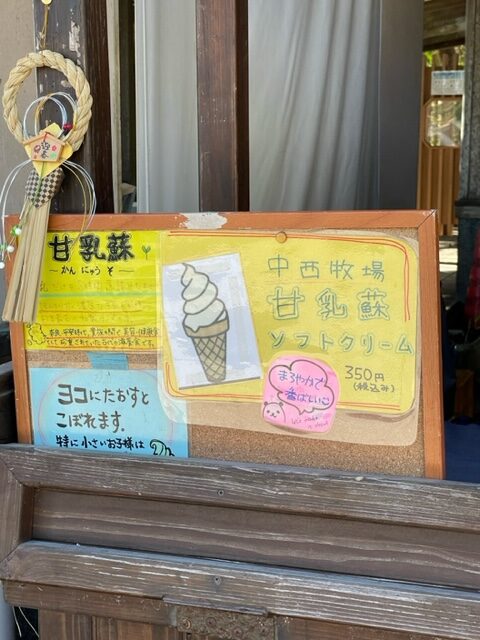 迎春
甘乳蘇
～かんにゅうそ～
中西牧場
甘乳蘇
ソフトクリーム
350円
(税込み)
まろやかで
香ばしい
ヨコにたおすと
こぼれます。
特に小さいお子様は